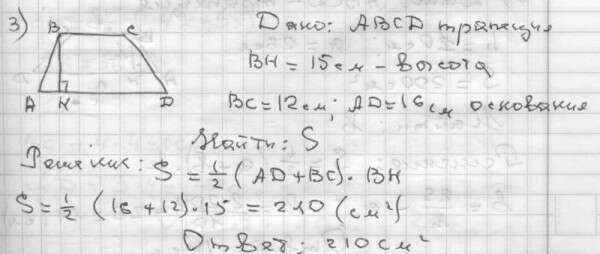 3) Дано: ABCD трапеция
B C
A H D
BH = 15 см - высота
BC = 12 см; AD = 16 см основания
Найти: S
Решение: S = 1/2 (AD + BC) · BH
S = 1/2 (16 + 12) · 15 = 210 (см²)
Ответ: 210 см²